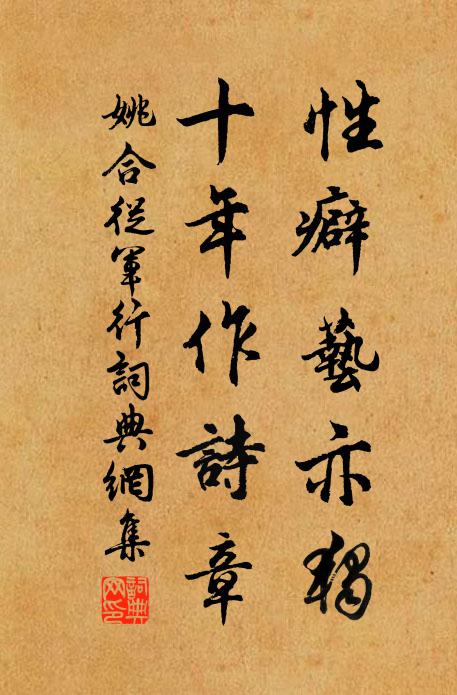 性癖藝亦獨
十年作詩章
姚合從軍行詞典網集
詞典
网印